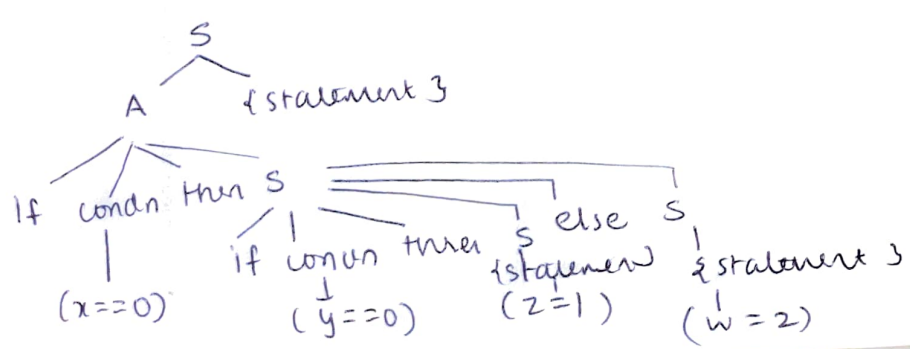 S
A {statement}
if condn then S
if condn then S else S
{statement} {statement}
(x==0) (y==0) (z=1) (w=2)